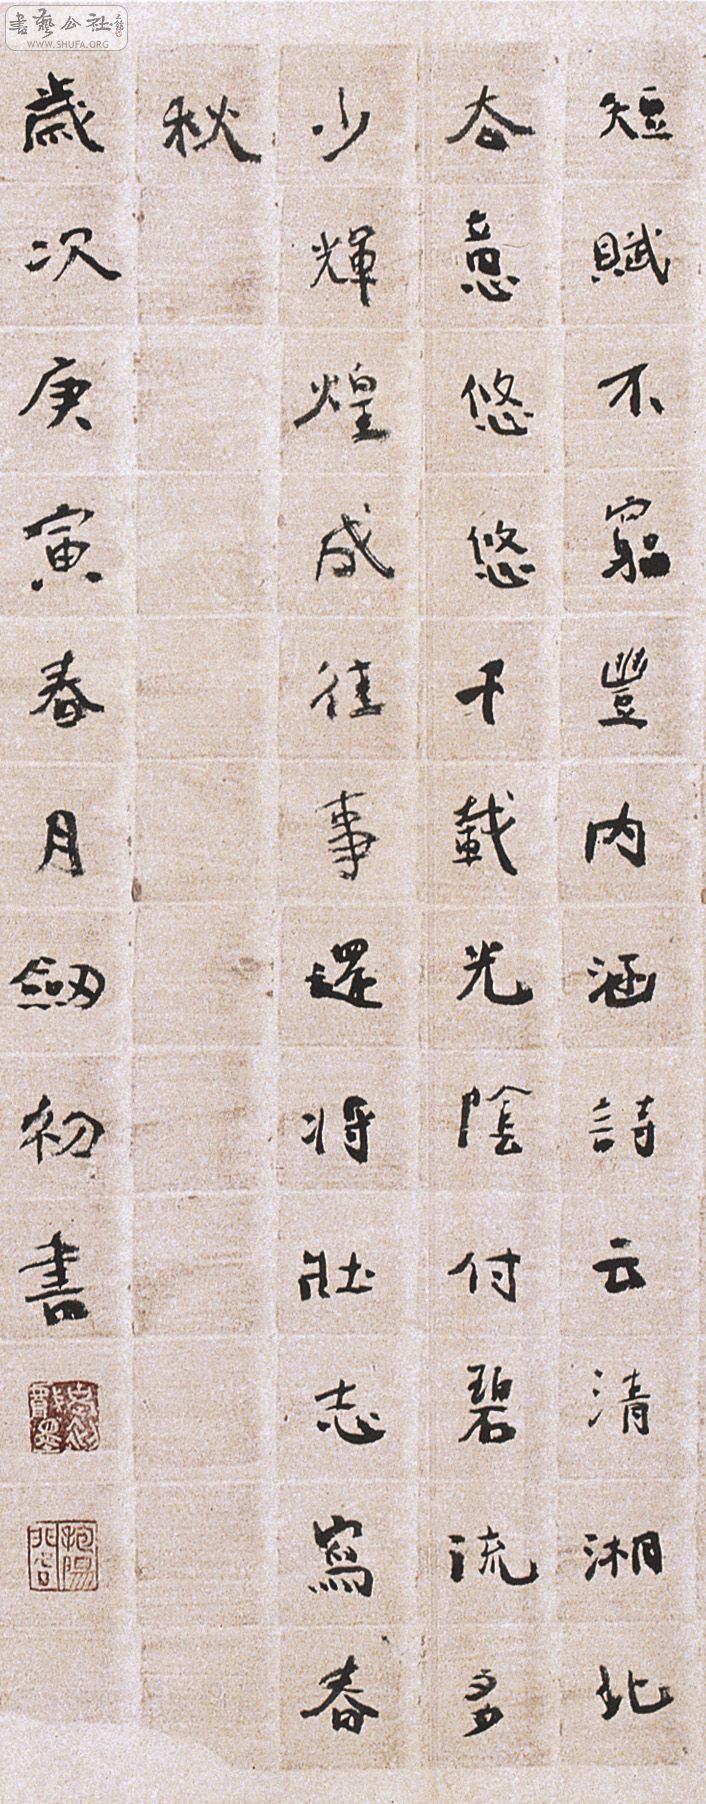 短賦不窮豐内涵詩云清湘北
去意悠悠千載光陰付碧流多
少輝煌成往事還将壯志寫春
秋
歲次庚寅春月劔初書
抱陽
書藝公社
WWW.SHUFA.ORG